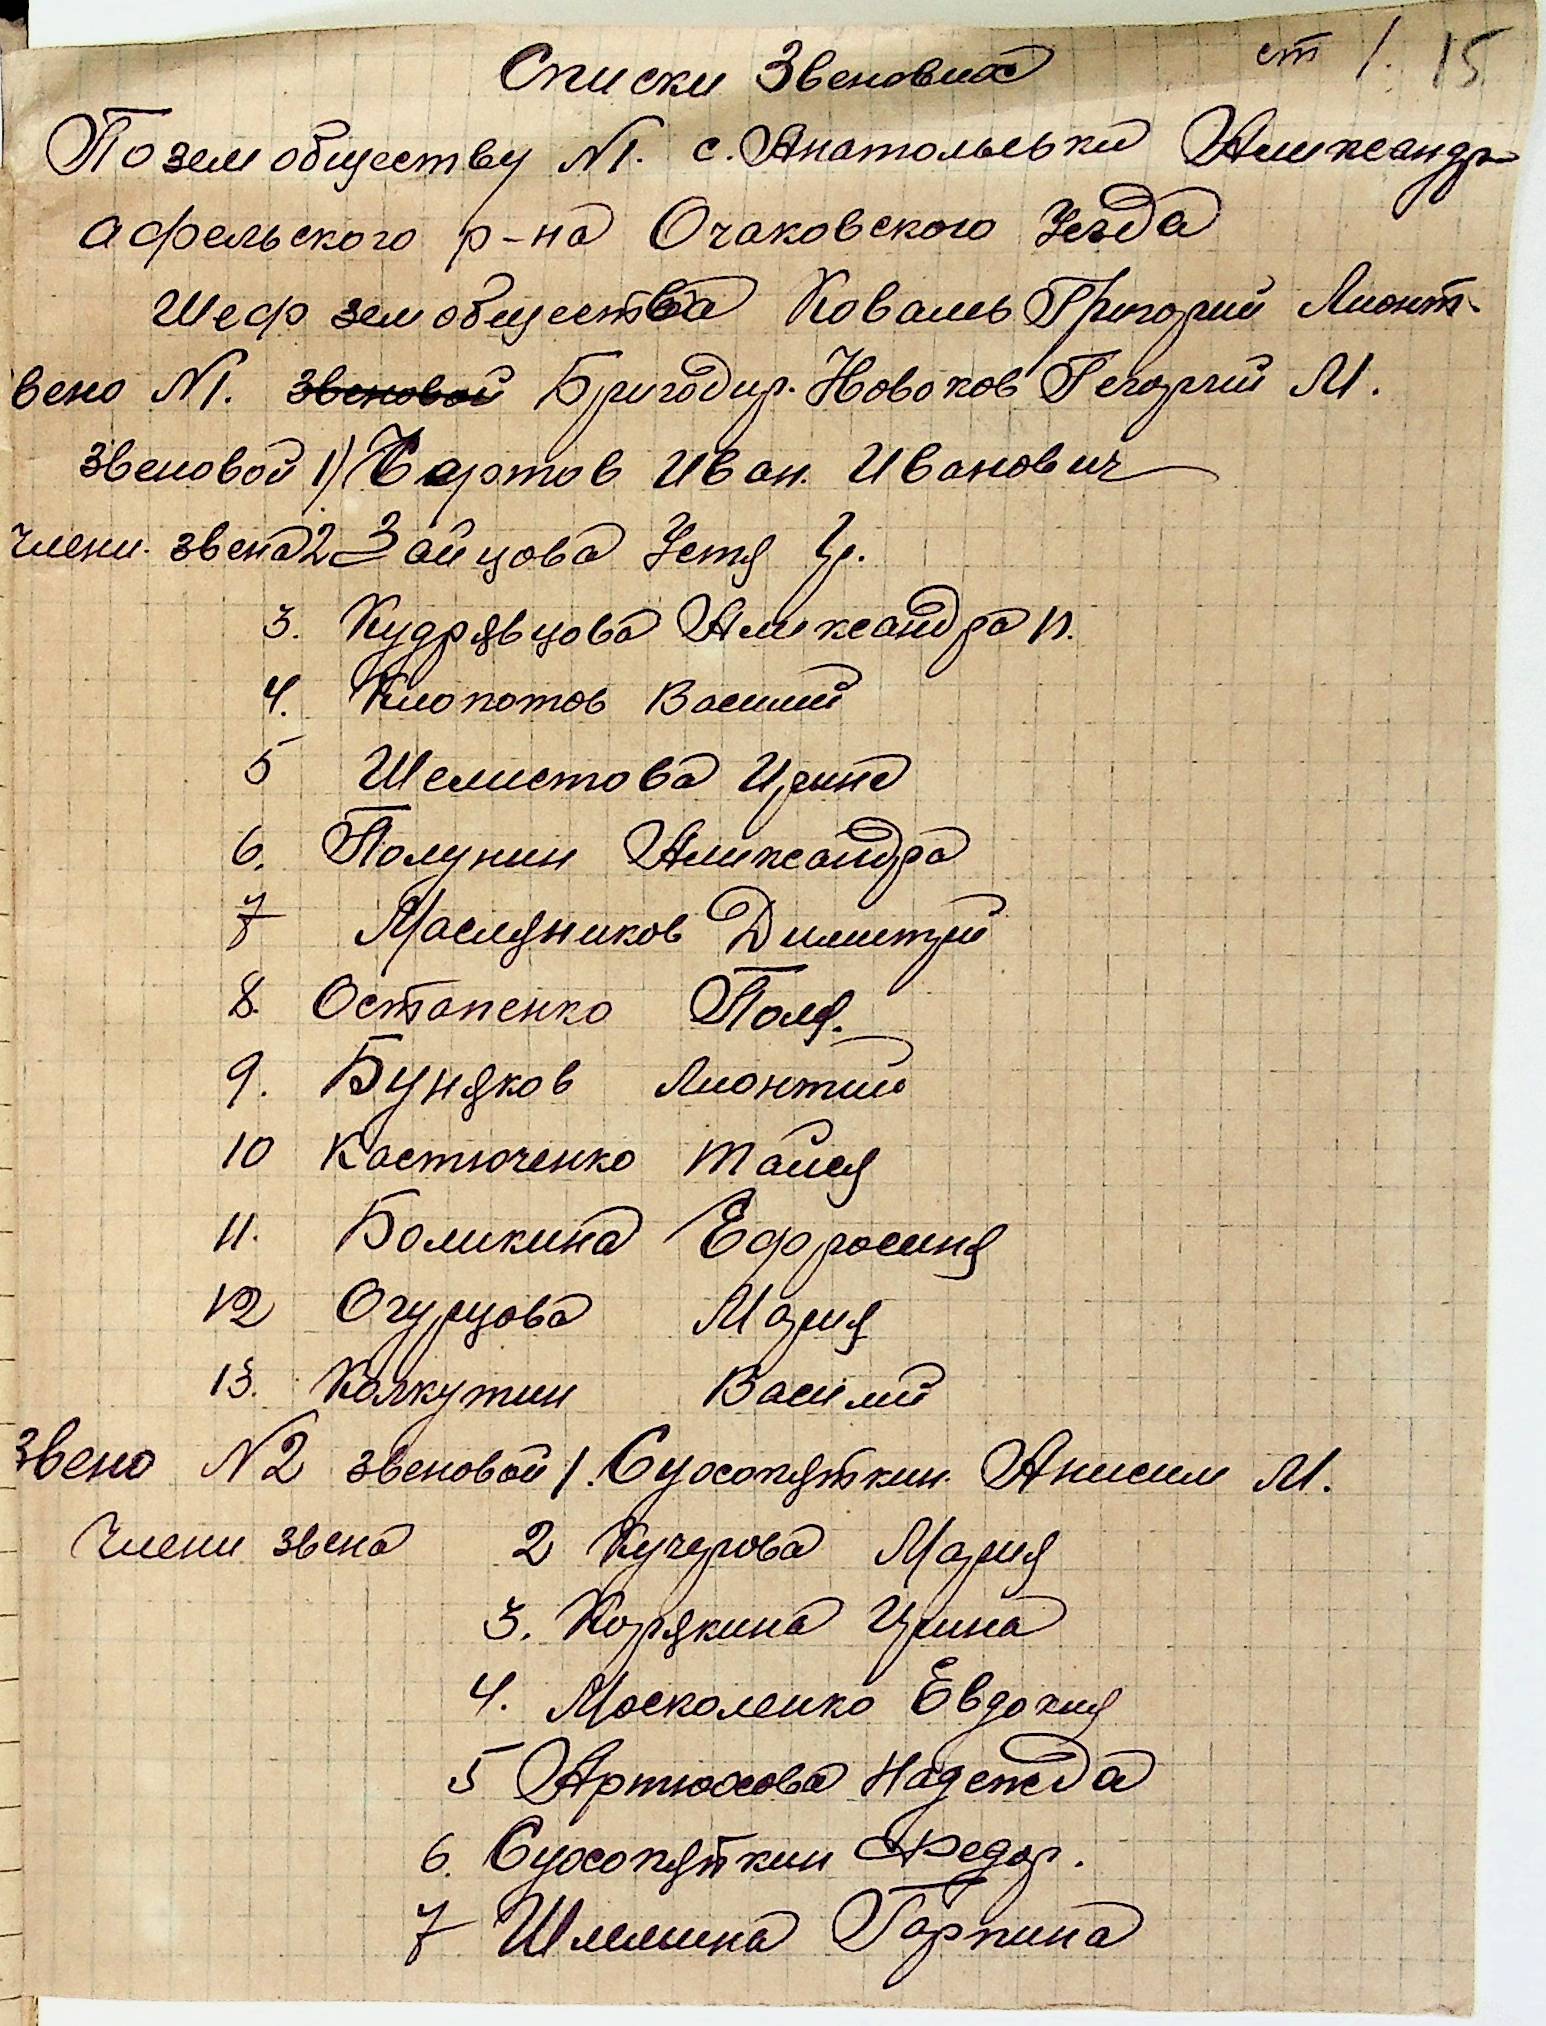 ст 1. 15
Списки Звеновых
По земобществу №1. с. Анатольевки Александр-
афельского р-на Очаковского Уезда
Шеф земобщества Коваль Григорий Лионт.
вено №1. звеновой Бригодир. Новоков Георгий М.
Звеновой 1) Чертов Иван. Иванович
члени. звена 2 Зайцова Устя Гр.
3. Кудрявцова Александра И.
4. Клопотов Василий
5 Шелистова Ирина
6. Полунин Александра
7 Масляников Димитрий
8. Остапенко Поля.
9. Буняков Лионтий
10 Костюченко Тайся
11. Боликина Ефросиня
12 Огурцова Мария
13. Колкутин Василий
Звено №2 звеновой 1. Сухопяткин. Анисим М.
Члени звена 2 Кучерова Мария
3. Корякина Ирина
4. Москоленко Евдокия
5 Артюхова Надежда
6. Сухопяткин Федор.
7 Шлелина Гарпина